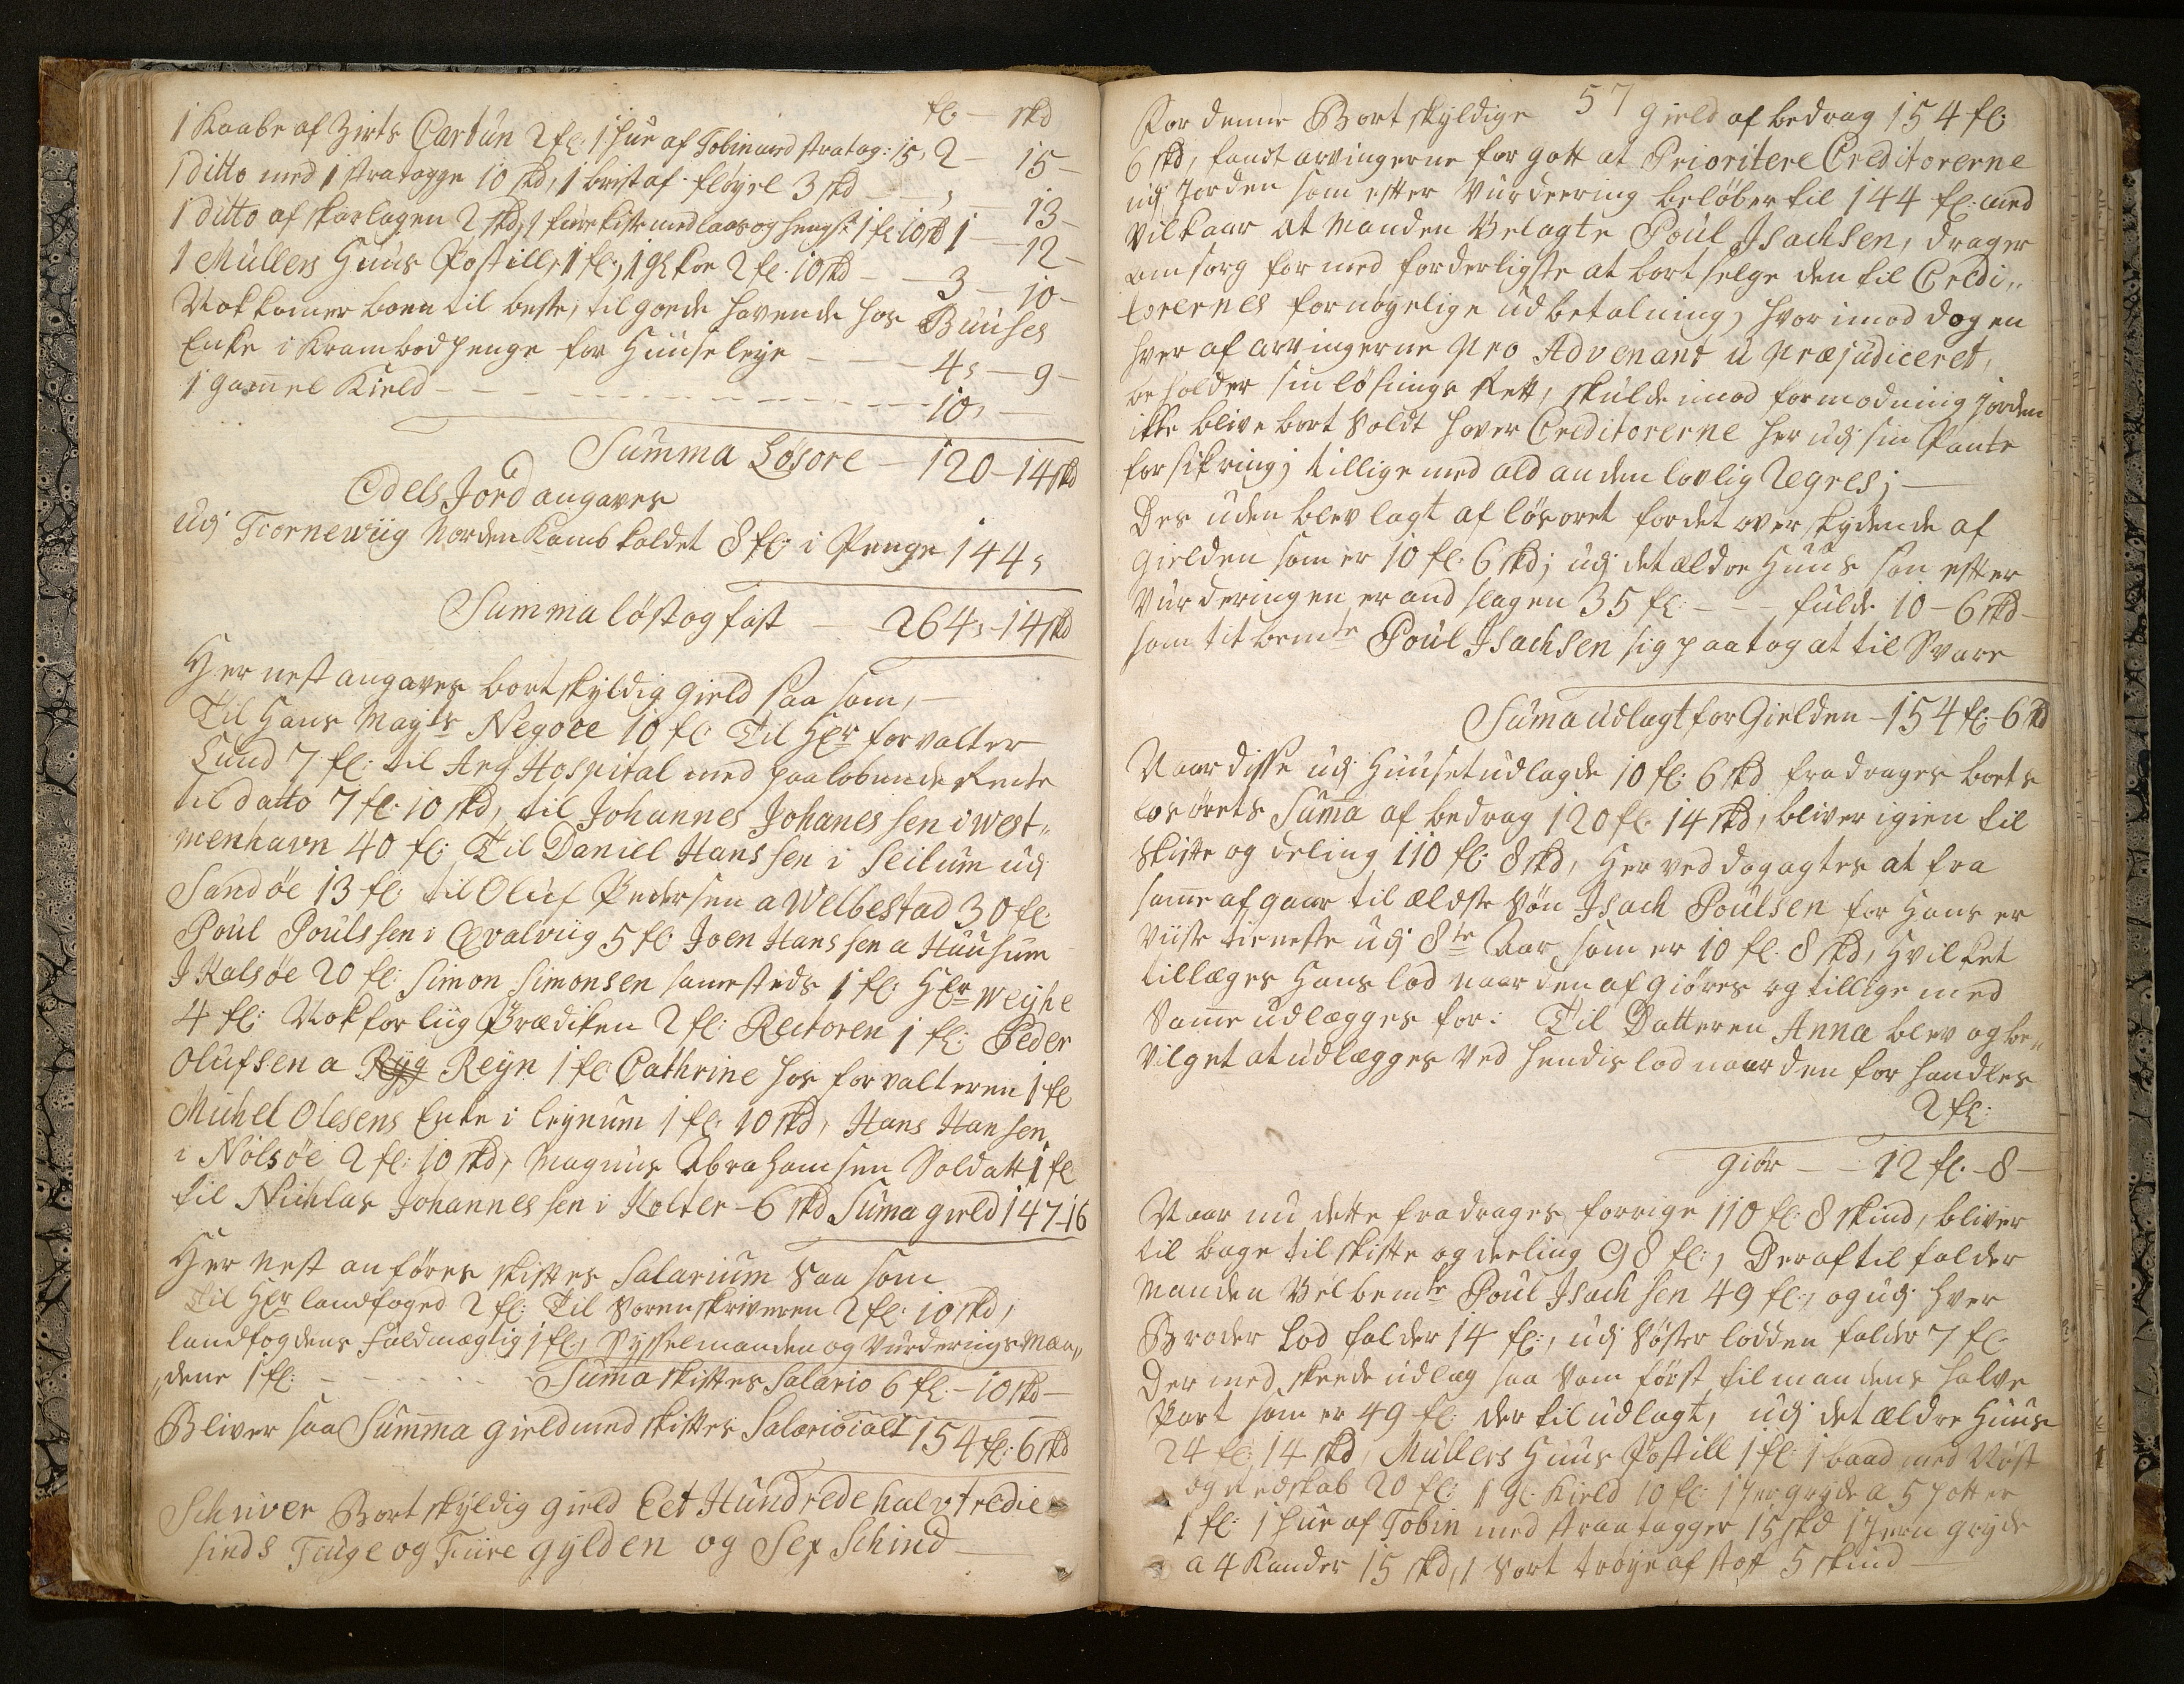 fl – skd
1 Kaabe af Zirts Cartun 2 fl: 1 hue af Tobin med stratag: 15, 2 – 15 –
1 ditto med 1 stratagge 10 skd, 1 brist af fløyel 3 skd – , – 13 –
1 ditto af skarlagen 2 skd, 1 furekiste med laas og hengsk 1 fl 10 skd 1 – 12 –
1 Müllers Huus Postill, 1 fl:, 1 gl: koe 2 fl. 10 skd – 3 – 10 –
Nok komer boen til beste, tilgoede havende hos Buuses
Enke i Krambod penge for Huuseleye – 4, – 9 –
1 gammel Kield – 10, –
Summa Løsøre – 120 – 14 skd
Odels Jord angaves
udj Tiornewiig Norden Kamb kaldet 8 fl: i Penge 144,
Summa løst og fast – 264, – 14 skd
Her nest angaves bortskyldig gield saa som, –
Til Hans Mayts Negoce 10 fl: Til Hr forvalter
Lund 7 fl: til Arg Hospital med paaløbende Rente
til datto 7 fl: 10 skd, til Johannes Johanessen i West„
menhavn 40 fl: Til Daniel Hanssen i Seilum udj
Sandøe 13 fl: til Oluf Pedersen a Welbestad 30 fl:
Poul Poulssen i Qvalviig 5 fl: Joen Hanssen a Huusum
J Kalsøe 20 fl: Simon Simonsen samesteds 1 fl: Hr Weyhe
4 fl: Nok for liig Prædiken 2 fl: Rectoren 1 fl: Peder
Olufsen a Ryg Reyn 1 fl: Cathrine hos forvalteren 1 fl
Michel Olesens Enke i leynum 1 fl: 10 skd, Hans Hansen
i Nolsøe 2 fl: 10 skd, Magnus Abrahamsen Soldatt 1 fl
til Nichlas Johannessen i Kolter – 6 skd Suma gield 147 – 16
Her nest anføres skiftes Salarium saa som
Til Hr landfoged 2 fl: Til Sorenskriveren 2 fl: 10 skd,
landfogdens fuldmægtig 1 fl:, Sysselmanden og VurderingsMæn„
„dene 1 fl: – Suma skiftes Salario 6 fl: – 10 skd –
Bliver saa Summa gield med skiftes Salario ialt 154 fl: 6 skd
Schriver Bortskyldig gield Eet Hundrede halvtredie
sinds Tiuge og Fiire gylden og Sex Schind –
57
For denne Bortskyldige gield af bedrag 154 fl:
6 skd, fandt arvingerne for gott at Prioritere Creditorerne
udj Jorden som efter Vurdeering beløber til 144 fl: med
Vilkaar at Manden Velagte Poul Isachsen, drager
omsorg for med forderligste at bortselge den til Credi„
torernes fornøyelige udbetalning, hvorimod dog en
hver af arvingerne pro Advenant u præjudiceret,
beholder sin løsnings Rett, skulde imod formodning jorden
ikke blive bort Soldt haver Creditorerne her udj sin Pante
forsikring; tillige med ald anden lovlig Regres; –
Des uden blev lagt af løsøret for det overskydende af
gielden som er 10 fl: 6 skd; udj det ældre Huus som efter
Vurderingen er andslagen 35 fl: – – – fulde 10 – 6 skd –
som titbemte Poul Isachsen sig paatog at til Svare
Suma udlagt for gielden – 154 fl: – 6 skd
Naar disse udj Huuset udlagde 10 fl: 6 skd fradrages boets
løsørets Suma af bedrag 120 fl: 14 skd, bliver igien til
Skifte og deling 110 fl: 8 skd, Her ved dog agtes at fra
same afgaar til ældste Søn Isach Poulsen for Hans er
viiste tieneste udj 8te Aar som er 10 fl: 8 skd, Hvilket
tillæges Hans lod naar den afgiøres og tillige med
Same udlægges for: Til Datteren Anna blev og be„
vilget at udlægges Ved hendis lod naar den forhandles
2 fl:
giør – – 12 fl: – 8 –
Naar nu dette fradrages forrige 110 fl: 8 skind, bliver
tilbage til skifte og deeling 98 fl:, Deraf til falder
Manden Velbemte Poul Isachsen 49 fl:, og udj hver
Broder Lod falder 14 fl:, udj Søster lodden falder 7 fl:
Der med skeede udlæg saa som først til mandens halve
Part som er 49 fl: der til udlagt, udj det ældre Huus
24 fl: 14 skd, Müllers Huus Postill 1 fl: 1 baad med Nøst
og redskab 20 fl: 1 gl: Kield 10 fl: 1 Jerngryde a 5 potter
1 fl: 1 hue af Tobin med straatagger 15 skd 1 Jern gryde
a 4 Kander 15 skd, 1 Sort trøye af stof 5 skind –